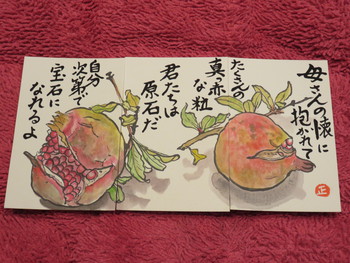 母さんの懐に
抱かれて
たくさんの
真っ赤な粒
君たちは
原石だ
自分
次第で
宝石に
なれるよ
正